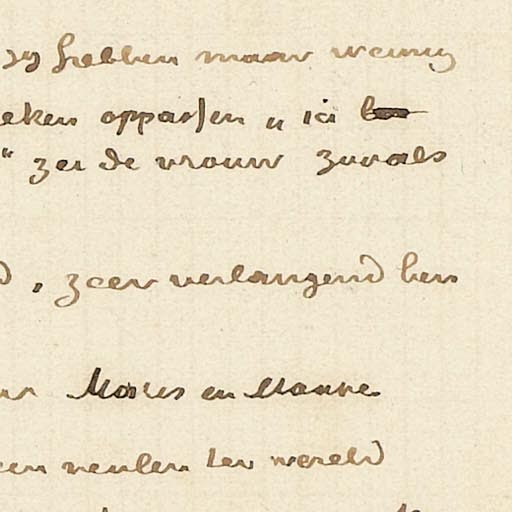 zy hebben maar weinig
eken oppassen „ ici
“ zei de vrouw zooals
d, zeer verlangend ben
Maris en Mauve.
een veulen ter wereld